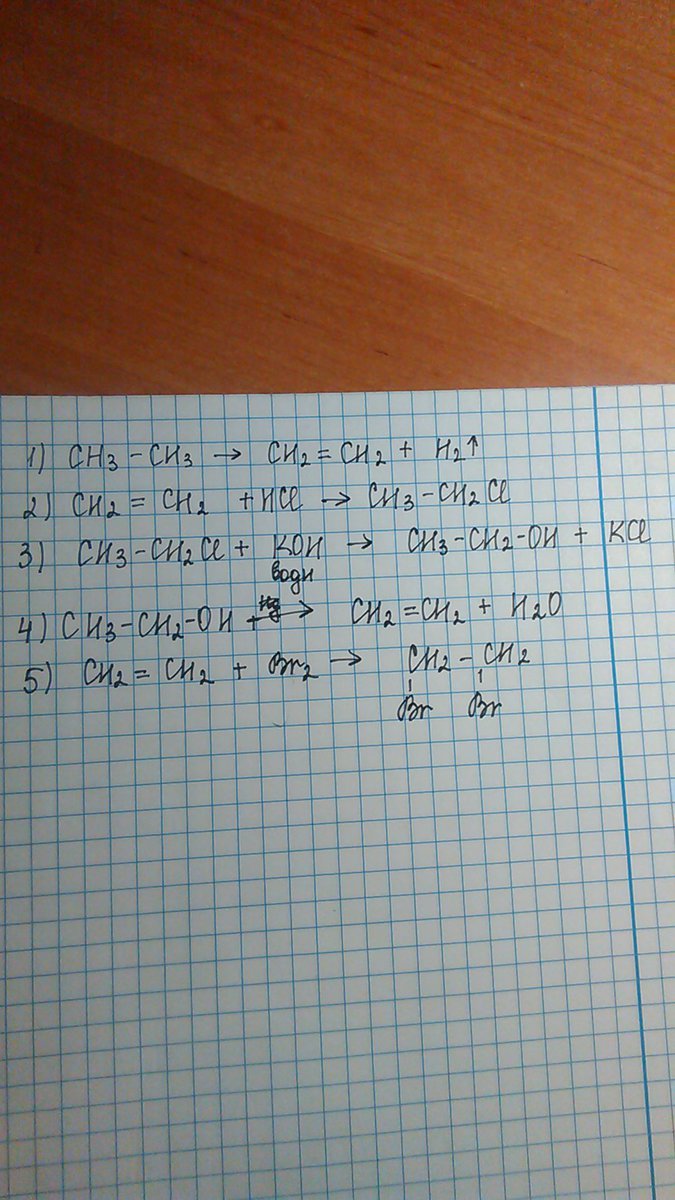 1) CH₃ – CH₃ → CH₂ = CH₂ + H₂↑
2) CH₂ = CH₂ + HCl → CH₃ – CH₂Cl
3) CH₃ – CH₂Cl + KOH → CH₃ – CH₂ – OH + KCl
водн
4) CH₃ – CH₂ – OH → CH₂ = CH₂ + H₂O
5) CH₂ = CH₂ + Br₂ → CH₂ – CH₂
Br Br